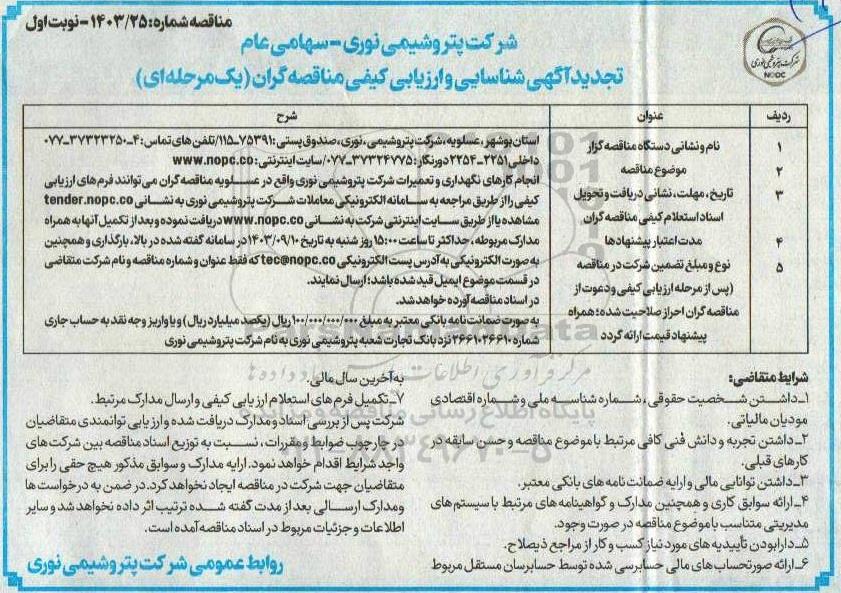 مناقصه شماره: ۱۴۰۳/۲۵ - نوبت اول
شرکت پتروشیمی نوری - سهامی عام
تجدید آگهی شناسایی و ارزیابی کیفی مناقصه گران (یک مرحله‌ای)
شرکت پتروشیمی نوری
NOPC
ردیف عنوان شرح
۱ نام و نشانی دستگاه مناقصه گزار
استان بوشهر، عسلویه، شرکت پتروشیمی، نوری، صندوق پستی: ۷۵۳۹۱-۱۱۵/تلفن های تماس: ۴-۳۷۳۲۳۲۵۰-۰۷۷
داخلی ۲۲۵۱-۲۲۵۴ دورنگار: ۳۷۳۲۴۷۷۵-۰۷۷/سایت اینترنتی: www.nopc.co
۲ موضوع مناقصه
انجام کارهای نگهداری و تعمیرات شرکت پتروشیمی نوری واقع در عسلویه مناقصه گران می توانند فرم های ارزیابی
۳ تاریخ، مهلت، نشانی دریافت و تحویل
اسناد استعلام کیفی مناقصه گران
کیفی را از طریق مراجعه به سامانه الکترونیکی معاملات شرکت پتروشیمی نوری به نشانی tender.nopc.co
مشاهده یا از طریق سایت اینترنتی شرکت به نشانی www.nopc.co دریافت نموده و بعد از تکمیل آنها به همراه
مدارک مربوطه، حداکثر تا ساعت ۱۵:۰۰ روز شنبه به تاریخ ۱۴۰۳/۰۹/۱۰ در سامانه گفته شده در بالا، بارگذاری و همچنین
به صورت الکترونیکی به آدرس پست الکترونیکی tec@nopc.co که فقط عنوان و شماره مناقصه و نام شرکت متقاضی
در قسمت موضوع ایمیل قید شده باشد؛ ارسال نمایند.
۴ مدت اعتبار پیشنهادها
در اسناد مناقصه آورده خواهد شد.
۵ نوع و مبلغ تضمین شرکت در مناقصه
(پس از مرحله ارزیابی کیفی و دعوت از
مناقصه گران احراز صلاحیت شده؛ همراه
پیشنهاد قیمت ارائه گردد
به صورت ضمانت نامه بانکی معتبر به مبلغ ۱۰۰/۰۰۰/۰۰۰/۰۰۰ ریال (یکصد میلیارد ریال) و یا واریز وجه نقد به حساب جاری
شماره ۲۶۶۱۰۲۶۶۱۰ نزد بانک تجارت شعبه پتروشیمی نوری به نام شرکت پتروشیمی نوری
شرایط متقاضی:
۱_داشتن شخصیت حقوقی، شماره شناسه ملی و شماره اقتصادی
مودیان مالیاتی.
۲_داشتن تجربه و دانش فنی کافی مرتبط با موضوع مناقصه و حسن سابقه در
کارهای قبلی.
۳_داشتن توانایی مالی و ارایه ضمانت نامه های بانکی معتبر.
۴_ارائه سوابق کاری و همچنین مدارک و گواهینامه های مرتبط با سیستم های
مدیریتی متناسب با موضوع مناقصه در صورت وجود.
۵_دارا بودن تأییدیه های مورد نیاز کسب و کار از مراجع ذیصلاح.
۶_ارائه صورتحساب های مالی حسابرسی شده توسط حسابرسان مستقل مربوط
به آخرین سال مالی.
۷_تکمیل فرم های استعلام ارزیابی کیفی و ارسال مدارک مرتبط.
شرکت پس از بررسی اسناد و مدارک دریافت شده و ارزیابی توانمندی متقاضیان
در چارچوب ضوابط و مقررات، نسبت به توزیع اسناد مناقصه بین شرکت های
واجد شرایط اقدام خواهد نمود. ارایه مدارک و سوابق مذکور هیچ حقی را برای
متقاضیان جهت شرکت در مناقصه ایجاد نخواهد کرد. در ضمن به درخواست ها
و مدارک ارسالی بعد از مدت گفته شده ترتیب اثر داده نخواهد شد و سایر
اطلاعات و جزئیات مربوط در اسناد مناقصه آمده است.
روابط عمومی شرکت پتروشیمی نوری